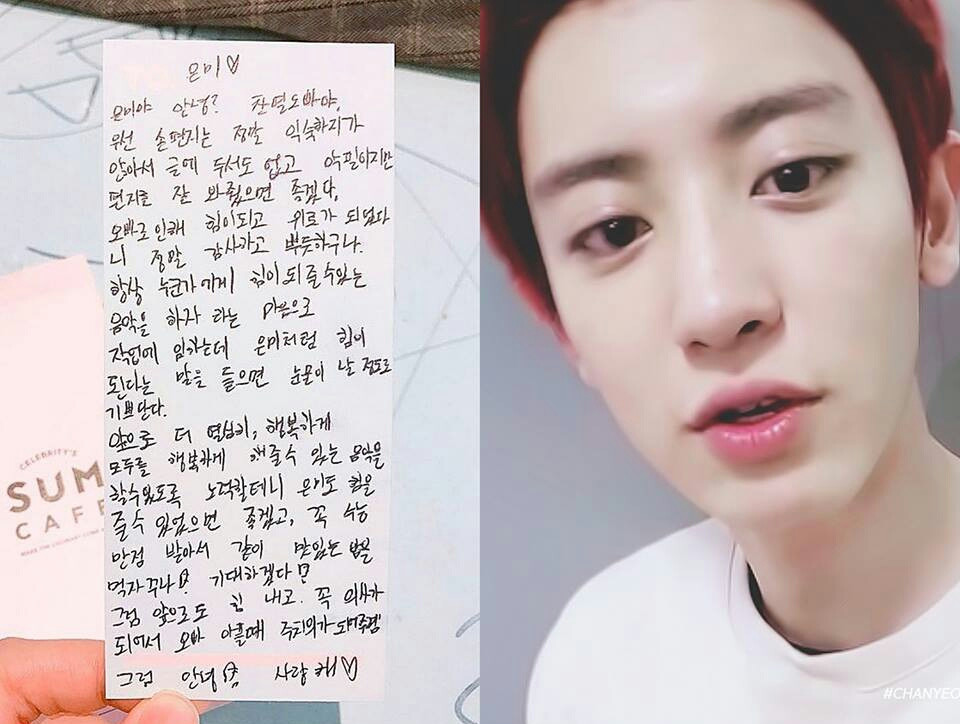 은미♡
은미야 안녕? 찬열오빠야,
우선 손편지는 정말 익숙하지가
않아서 글에 두서도 없고 악필이지만
편지를 잘 봐줬으면 좋겠다,
오빠로 인해 힘이되고 위로가 되었다
니 정말 감사하고 뿌듯하구나.
항상 누군가에게 힘이 되 줄수있는
음악을 하자 라는 마음으로
작업에 임하는데 은미처럼 힘이
된다는 말을 들으면 눈물이 날 정도로
기쁘단다.
앞으로 더 열심히, 행복하게
모두를 행복하게 해줄수 있는 음악을
할수있도록 노력할테니 은미도 힘을
줄수 있었으면 좋겠고, 꼭 수능
만점 받아서 같이 맛있는 밥을
먹자꾸나! 기대하겠다!
그럼 앞으로도 힘 내고. 꼭 의사가
되어서 오빠 아플때 주치의가 되어주렴
그럼 안녕 사랑해♡
CELEBRITY'S
SUM
CAFE
#CHANYEO